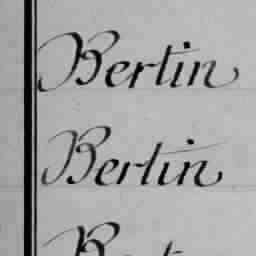 Bertin
Bertin